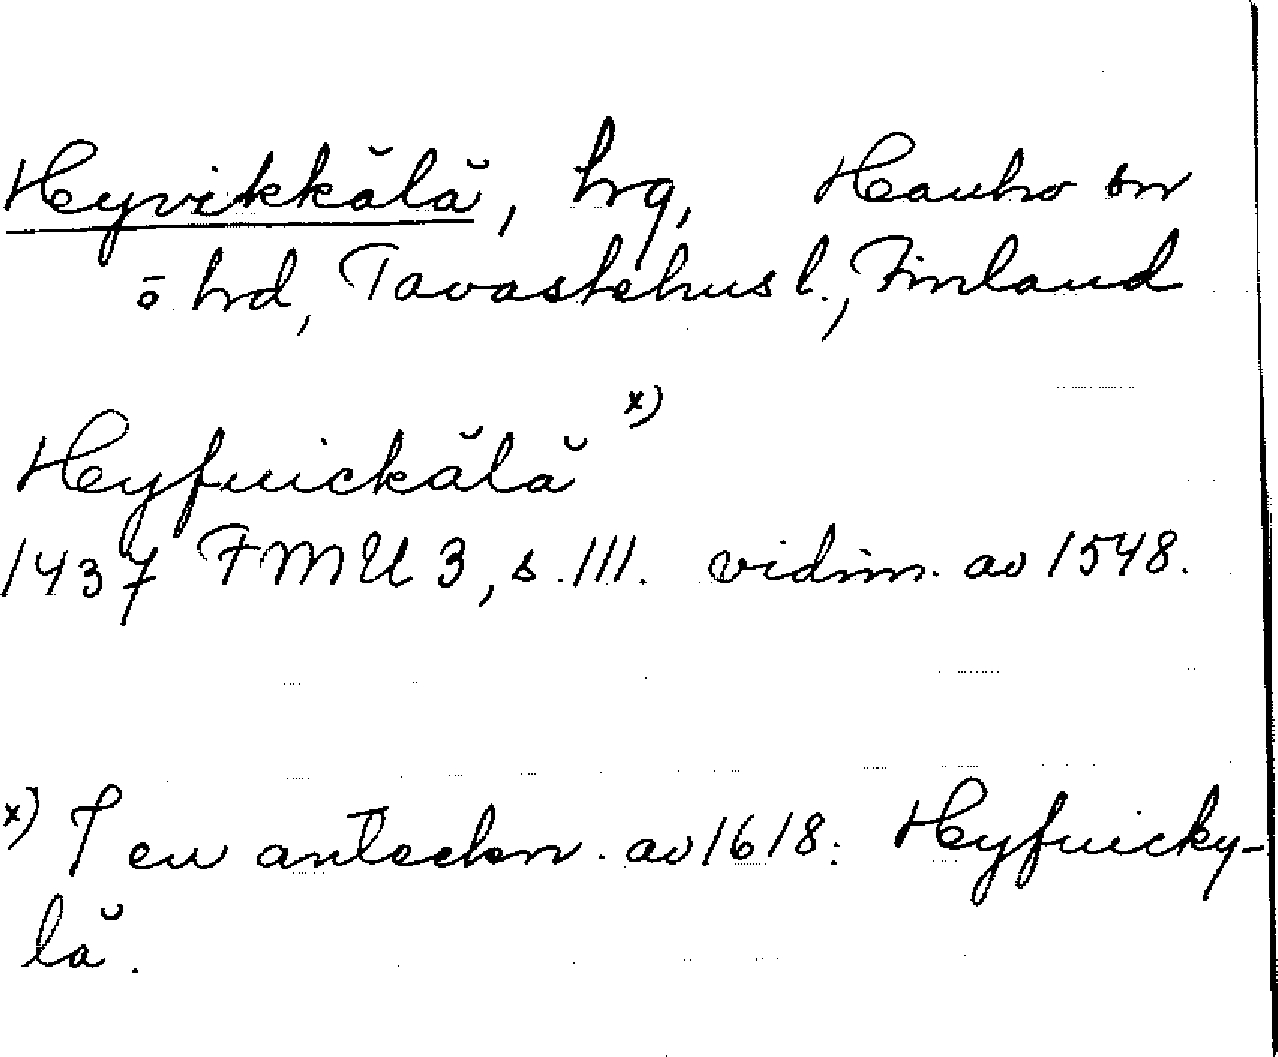 Hyvikkälä, hrg, Hauho sn
o hrd, Tavastehus l., Finland
Hyfuickälä x)
1437 FMU 3, s. 111. vidim. av 1548.
x) I en anteckn. av 1618: Hyfuicky-
lä.